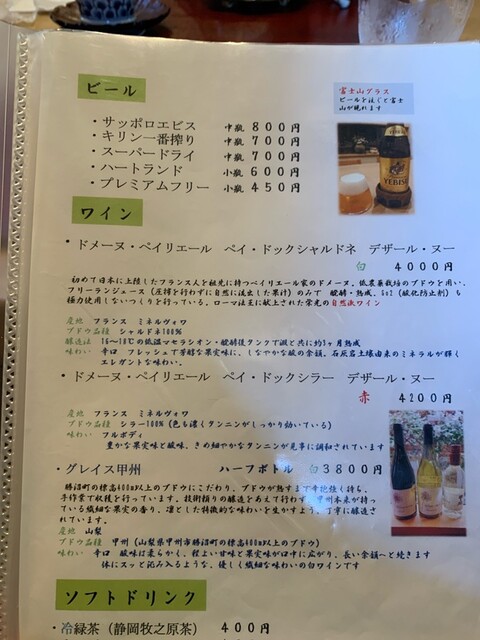 ビール
富士山グラス
ビールを注ぐと富士
山が現れます
・サッポロエビス 中瓶 800円
・キリン一番搾り 中瓶 700円
・スーパードライ 中瓶 700円
・ハートランド 小瓶 600円
・プレミアムフリー 小瓶 450円
YEBISU
ワイン
・ドメーヌ・ペイリエール ペイ・ドックシャルドネ デザール・ヌー
白 4000円
初めて日本に上陸したフランス人を祖先に持つペイリエール家のドメーヌ。低農薬栽培のブドウを用い、
フリーランジュース（圧搾を行わずに自然に流出した果汁）のみで 醗酵・熟成、so2（酸化防止剤）も
極力使用しないつくりを行っている。ローマ法王に献上された栄光の自然派ワイン
産地 フランス ミネルヴォワ
ブドウ品種 シャルドネ100%
醸造法 16～18℃の低温マセラシオン・醗酵後タンクで澱と共に約3ヶ月熟成
味わい 辛口 フレッシュで芳醇な果実味に、しなやかな酸の余韻。石灰岩土壌由来のミネラルが輝く
エレガントな味わい。
・ドメーヌ・ペイリエール ペイ・ドックシラー デザール・ヌー
赤 4200円
産地 フランス ミネルヴォワ
ブドウ品種 シラー100%（色も濃くタンニンがしっかり効いている）
味わい フルボディ
豊かな果実味と酸味、きめ細やかなタンニンが見事に調和されています
・グレイス甲州 ハーフボトル 白3800円
勝沼町の標高400m以上のブドウにこだわり、ブドウが熟すまで辛抱強く待ち、
手作業で収穫を行っています。技術頼りの醸造をあえて行わず、甲州本来が持っ
ている繊細な果実の香り、凛とした特徴的な味わいを生かすよう、丁寧に醸造さ
れています。
産地 山梨
ブドウ品種 甲州（山梨県甲州市勝沼町の標高400m以上のブドウ）
味わい 辛口 酸味は柔らかく、程よい甘味と果実味が口中に広がり、長い余韻へと続きます
体にスッと沁み入るような、優しく繊細な味わいの白ワインです
ソフトドリンク
・冷緑茶（静岡牧之原茶） 400円